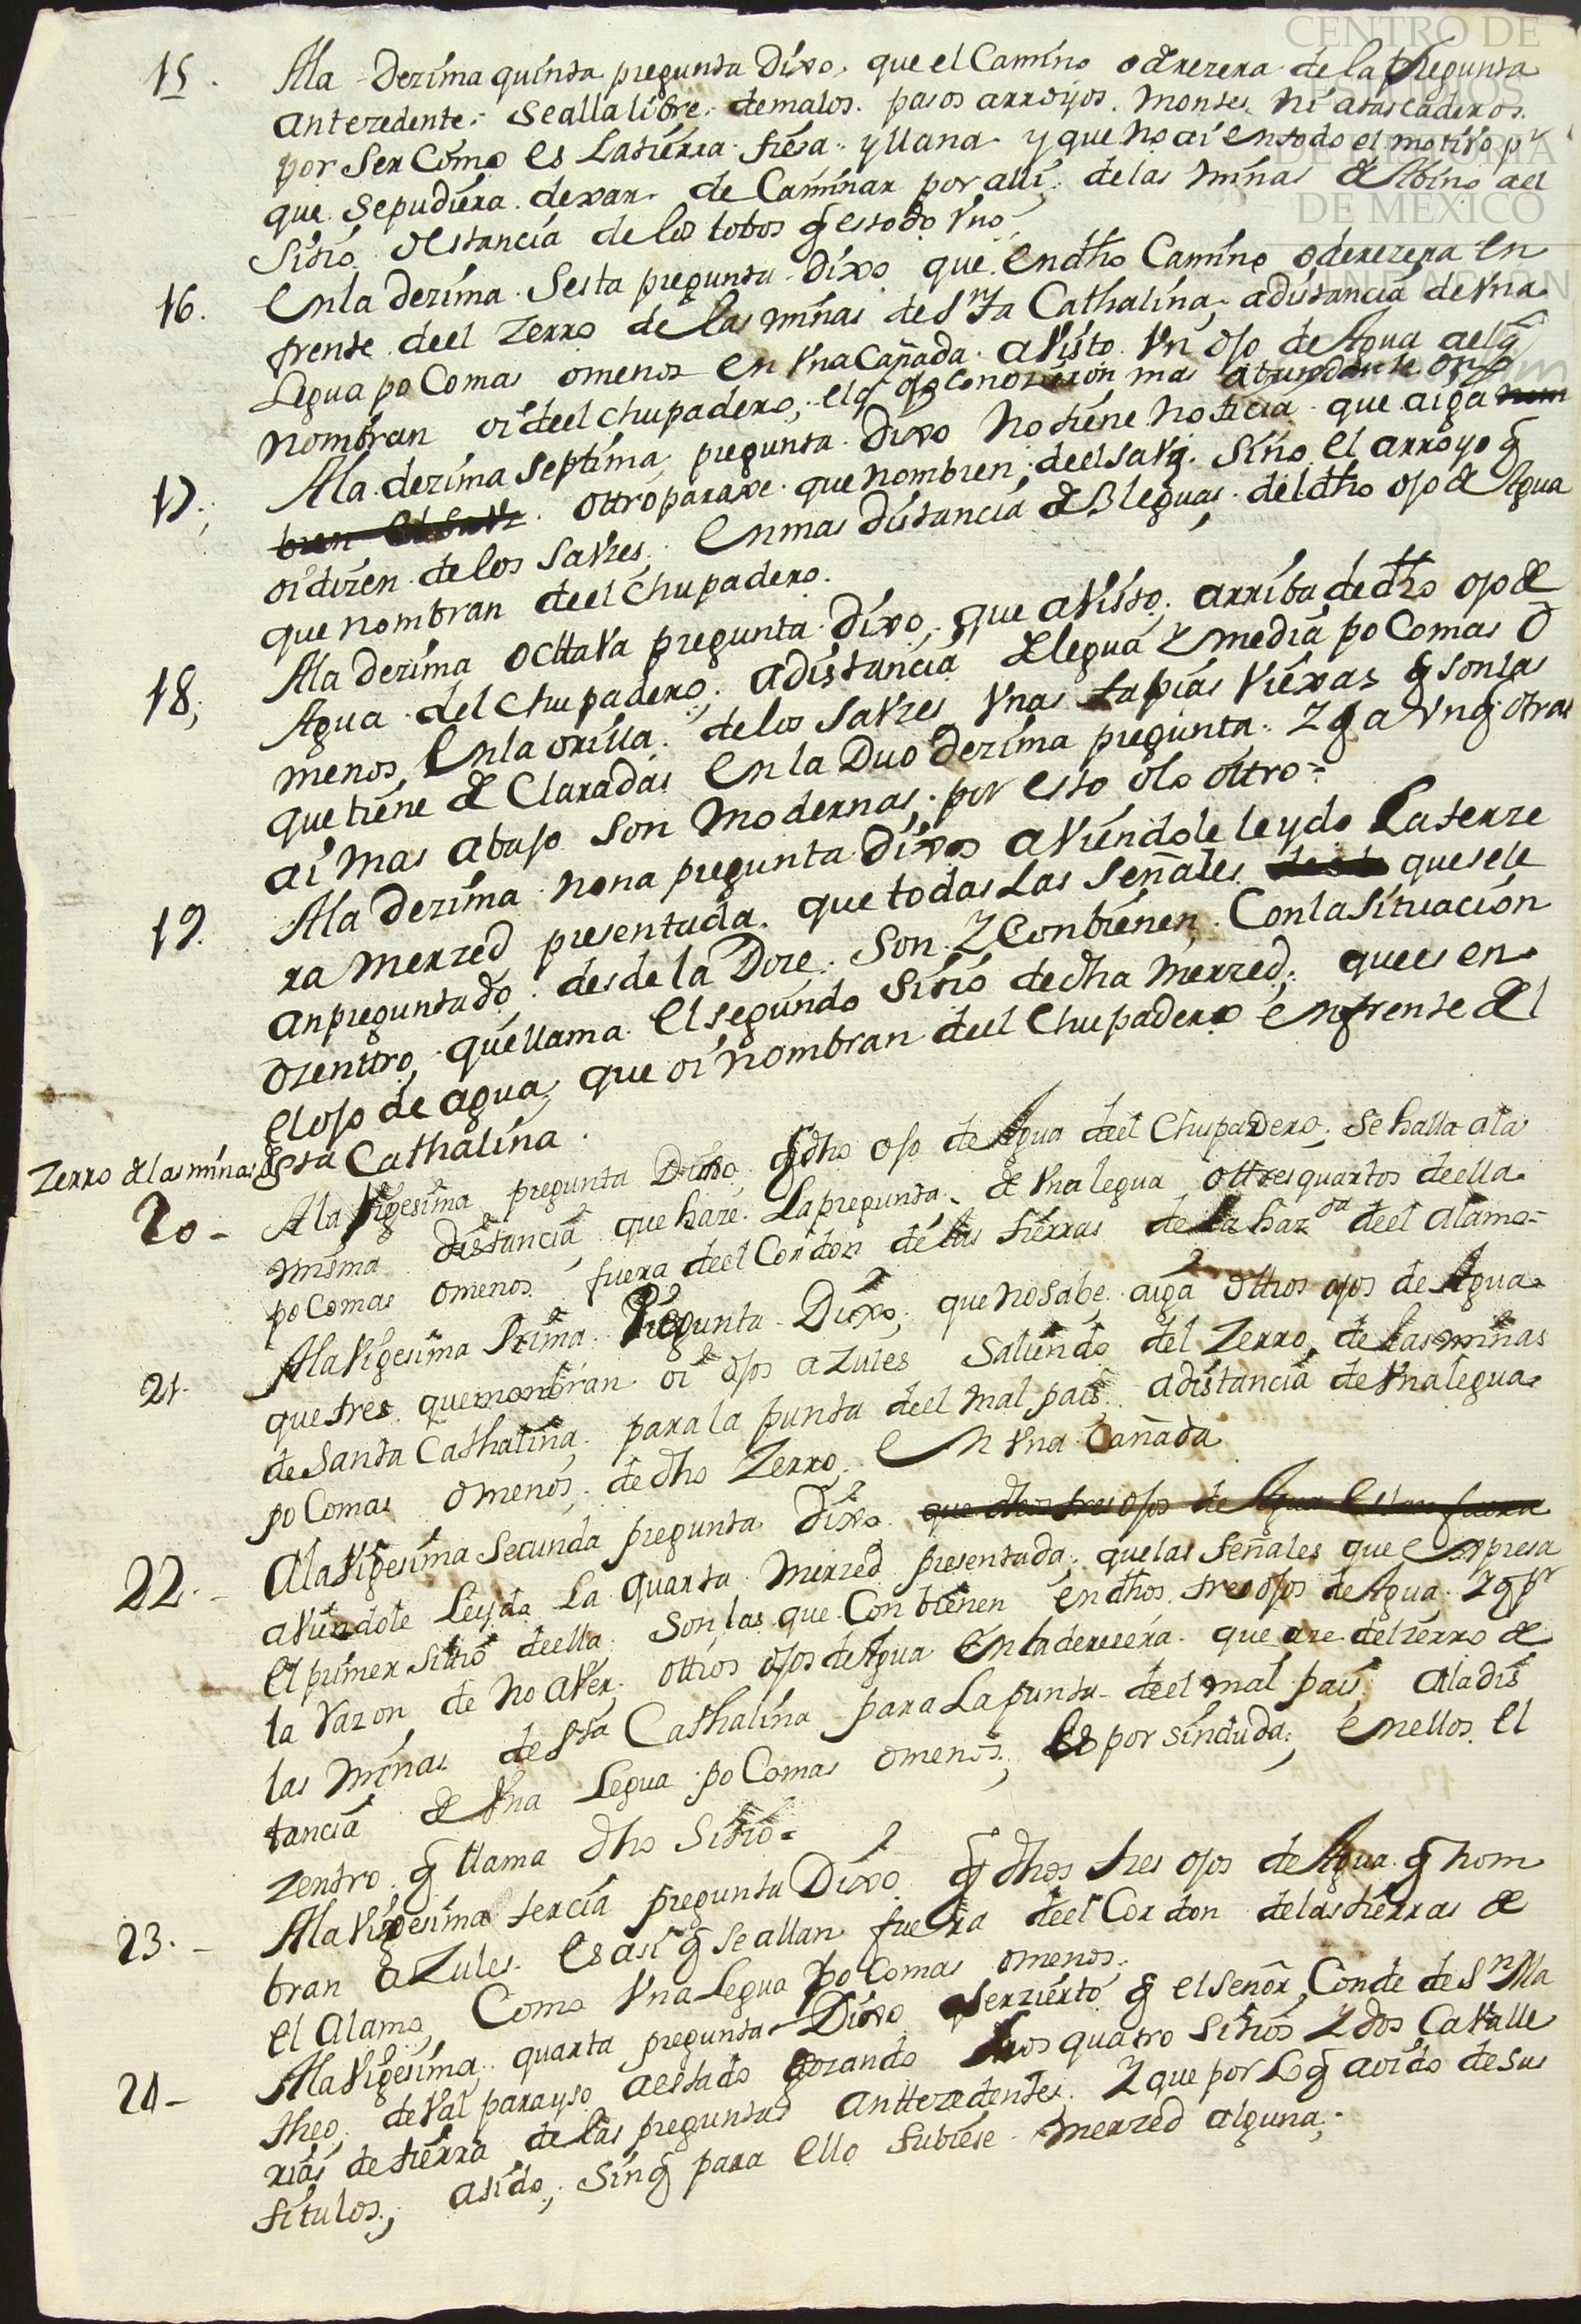 CENTRO DE
ESTUDIOS
DE HISTORIA
DE MEXICO
FUNDACIÓN
15. Ala Dezima quinta pregunta Dixo, que el Camino oderezera de la Pregunta
antezedente; Sealla libre, demalos pasos arroyos, montes, ni atascaderos.
por Ser Como es Latierra tiesa yllana y que no ai entodo el motivo pr
que Sepudiera dexar de Caminar por alli, delas minas de Albino ael
Sitio oestancia de los lobos q̃ estodo Vno
16. Enla dezima Sesta pregunta dixo que Endho Camino oderezera en
frente deel Zerro de las minas de Sta Cathalina, adistancia de Vna
Legua poComas omenos en VnaCañada a Visto Vn ojo de Agua aelq̃
nombran oi deel chupadero; elq̃
17; Ala dezima septima pregunta Dixo no tiene noticia que aiga nom
bren el Sauz ottro paraxe que nombren, deelsauz, Sino el arroyo q̃
oi dizen de los Sauzes, Enmas distancia de 3 leguas del dho ojo de Agua
que nombran deel Chupadero.
18; Ala dezima octtava pregunta Dixo, que a Visto, arriba de dho ojo de
Agua del Chupadero, adistancia de legua Y media poComas o
menos, Enla orilla delos Sauzes Vnas tapias Viexas q̃ sonlas
que tiene de Claradas En la Duodezima pregunta. Y q̃ a Vnq̃ otras
ai mas abajo son modernas, por esto olo ottro=
19. Ala dezima nona pregunta dixo aViendole leydo Laterze
ra merzed presentada, que todas Las Señales quesele
anpreguntado desde la Doze, Son Y Conbienen, Conla Situacion
Dzenttro, quellama El segundo Sitio dedha merzed, quees en
Elojo de agua, que oi nombran deel Chupadero enfrente del
Zerro de las minas de Sta Cathalina.
20 - Ala Vigesima pregunta Dixo, q̃ dho ojo de Agua deel Chupadero, se halla ala
misma distancia que haze Lapregunta, de Vna legua ottres quartos deella
poComas omenos fuera deel Cordon de las tierras de la hazda deel alamo=
21. AlaVigesima Prima Pregunta Dixo, que nosabe aiga ottros ojos de Agua
que tres quenombran oi ojos azules Saliendo del Zerro de las minas
de Santa Cathalina, para la punta deel mal pais, adistancia de Vnalegua
poComas omenos, de dho Zerro, En Vna Cañada
22. - AlaVigesima Secunda pregunta Dixo que dhos tres ojos de Agua Estan fuera
aViendole Leydo La quarta merzed presentada, quelas Señales que Expresa
El primer sittio deella Son las que Conbienen endhos tres ojos de Agua. Y q̃ pr
la razon de no aVer ottros ojos de Agua En laderecera que ze del zerro de
las minas de Sta Cathalina para La punta deel mal pais, aladis
tancia de Vna Legua poComas omenos, Es por sinduda, enellos el
zentro q̃ llama dho Sitio=
23. - AlaVigesima tercia pregunta Dixo q̃ dhos tres ojos de Agua q̃ nom
bran aZules. Es asi q̃ se allan fuera deel Cordon delas tierras de
el alamo, Como Vna Legua poComas omenos.
24 - AlaVigesima quarta pregunta Dixo Serzierto q̃ el Señor Conde de Sn Ma
theo de Val parayso aestado gozando los quatro Sitios Y dos CaValle
rias de tierra de las preguntas anttezedentes. Y que por Lo q̃ aoido desus
titulos; asido; Sinq̃ para ello tubiese merzed alguna;